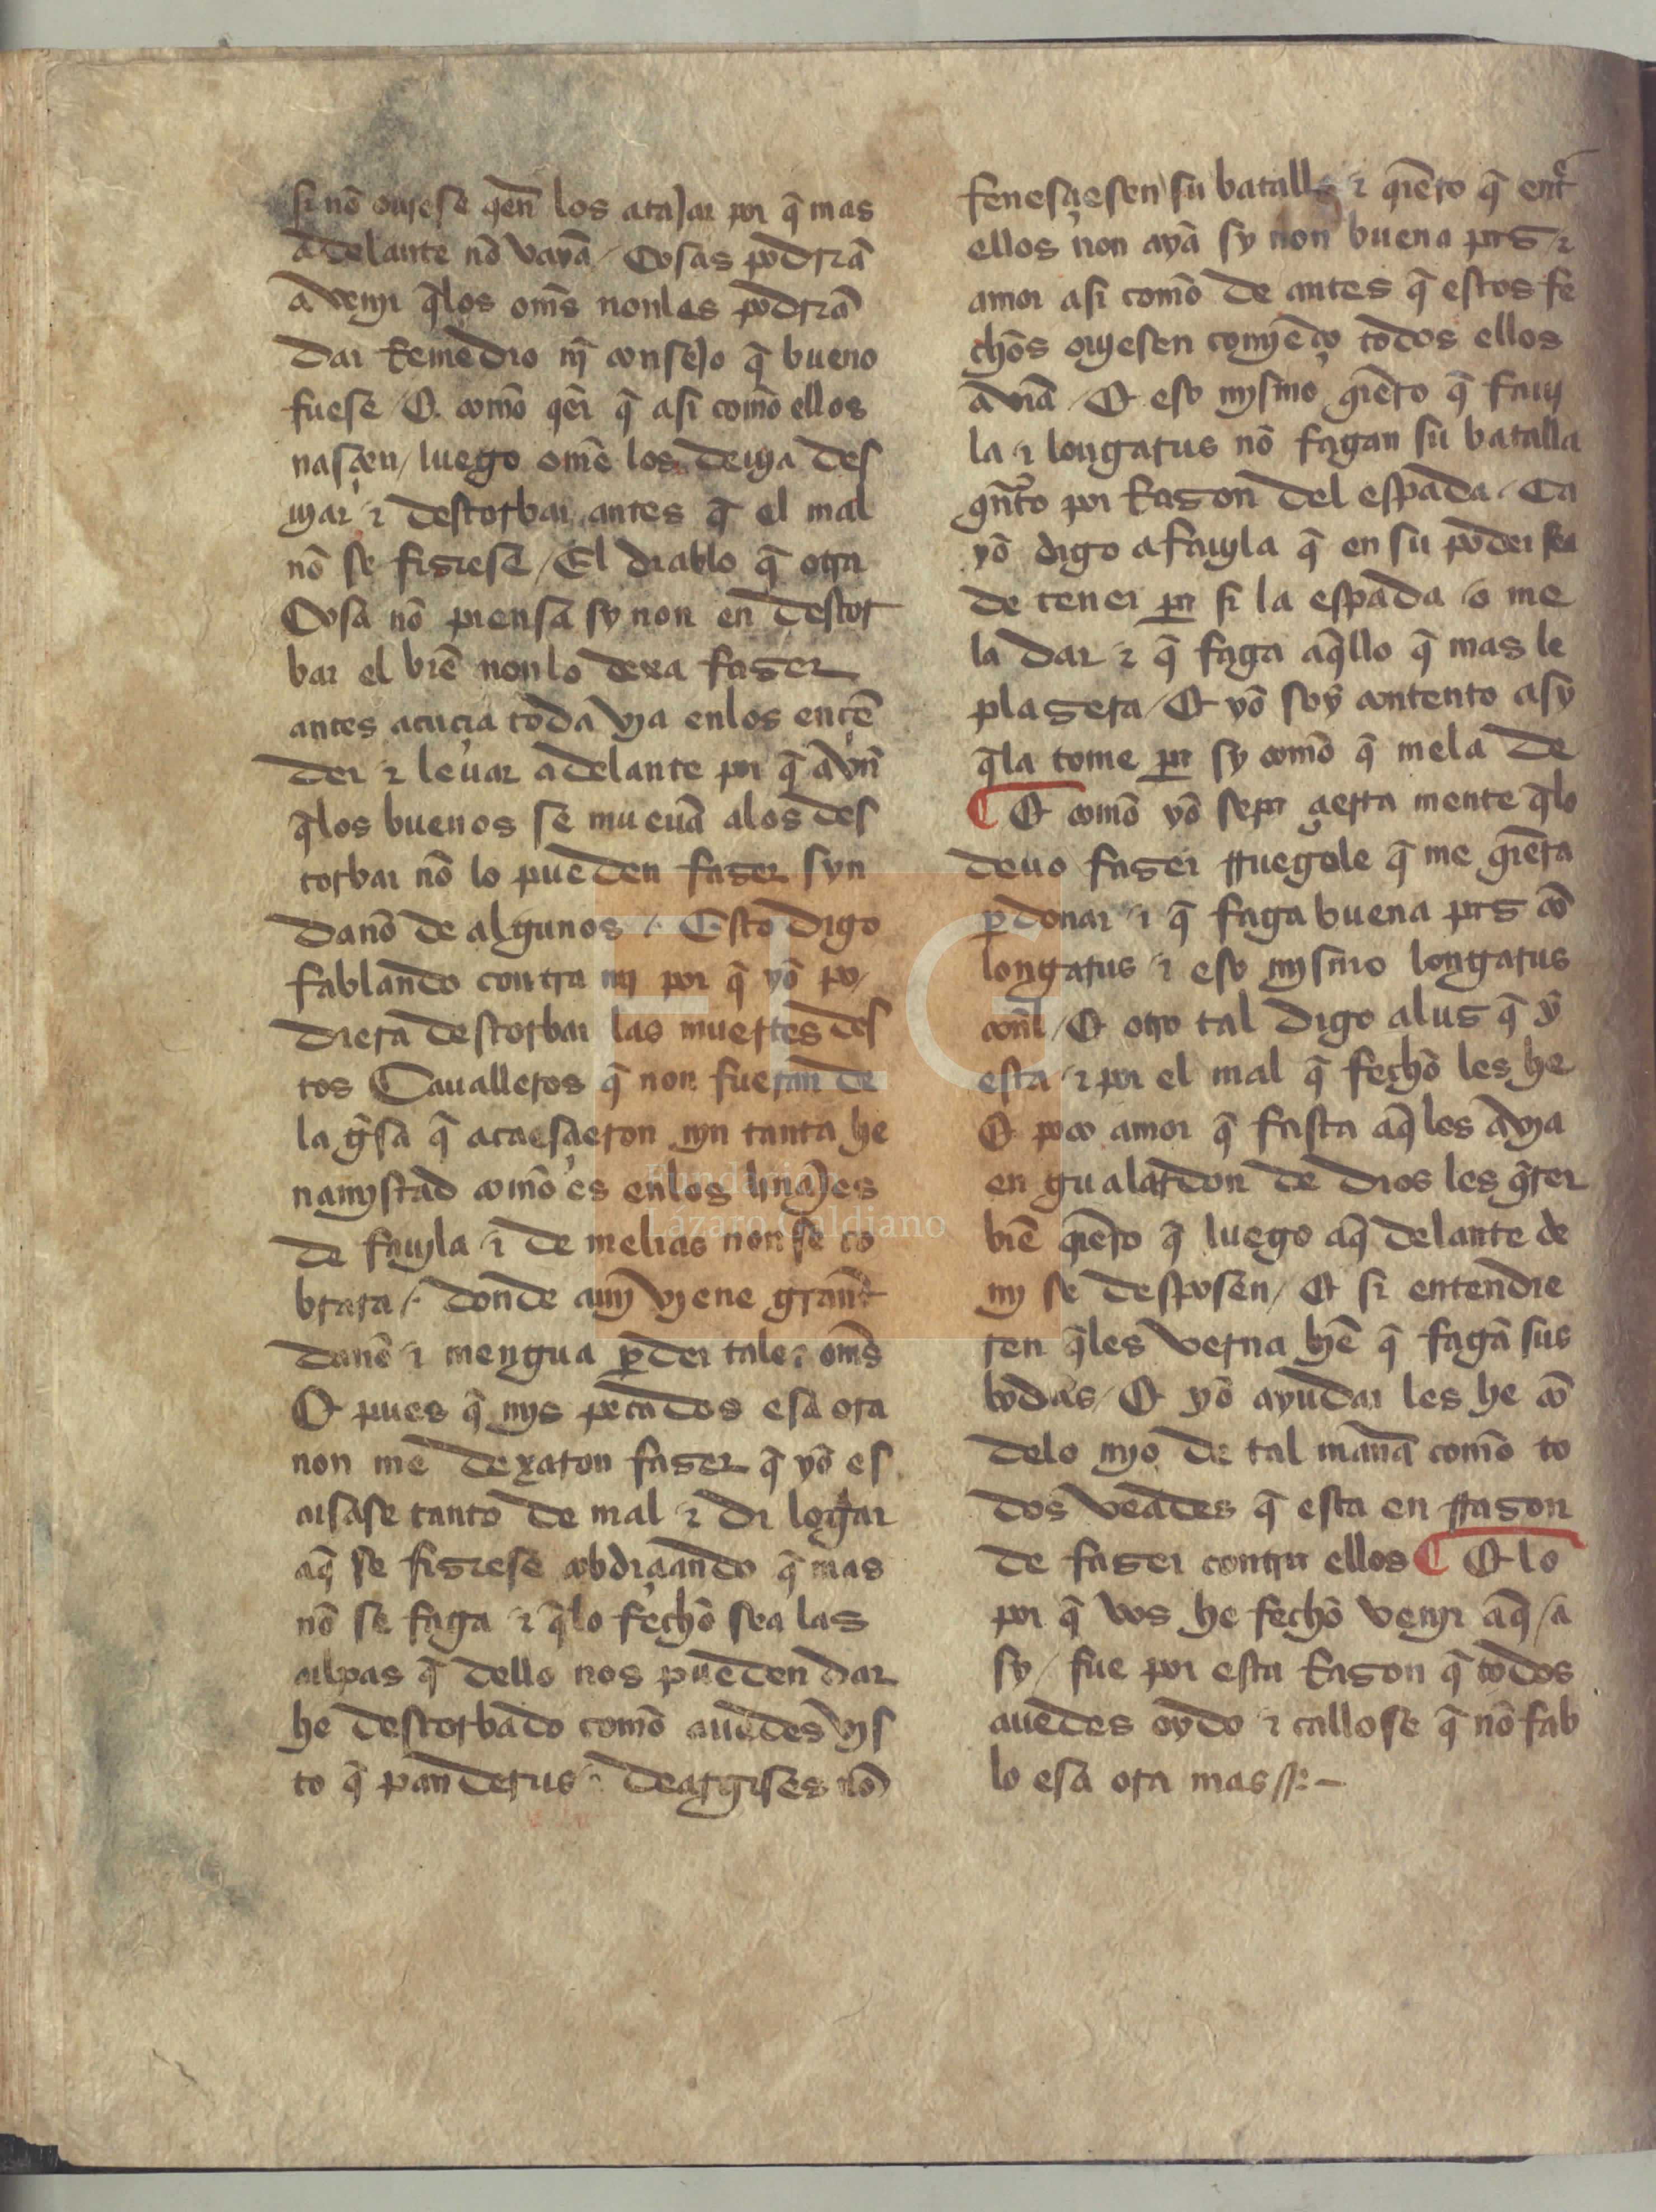 si nõ ouiese q̃en los atajar por q̃ mas
adelante nõ vayã / Cosas podriã
avenir q̃los om̃s nonlas podriã
dar Remedio nj̃ consejo q̃ bueno
fuese / O. comõ q̃er q̃ asi comõ ellos
nasçen / luego omẽ los deuja des
ujar ⁊ destorbar antes q̃ el mal
nõ se fiziese / El diablo q̃ otra
Cosa nõ piensa sy non en destor
bar el biẽ nonlo dexa fazer
antes acuçia toda vja enlos ençẽ
der ⁊ leuar adelante por q̃ avn̄
q̃los buenos se mueuã alos des
torbar nõ lo pueden fazer syn
danõ de algunos /. Esto digo
fablando contra mj por q̃ yõ po/
diera destorbar las muertes des
tos Caualleros q̃ non fueran de
la g̃sa q̃ acaesçieron njn tanta he
namjstad comõ es enlos linajes
de fauyla ⁊ de melias non se co
brara /. donde a mj̃ vjene grand̃
danõ ⁊ mengua p̱der tales om̃s
Et pues q̃ mjs pecados esa ora
non me dexaron fazer q̃ yõ es
cusase tanto de mal ⁊ di logar
aq̃ se fiziese cobdiçiando q̃ mas
nõ se faga ⁊ q̃lo fechõ sea las
culpas q̃ dello nos pueden dar
he destorbado comõ auedes vjs
to q̃ panderus ⁊ deargises nõ
fenesçiesen su batalla ⁊ q̃ero q̃ ent̃
ellos non ayã sy non buena paz ⁊
amor asi comõ de antes q̃ estos fe
chõs oujesen comẽço todos ellos
aviã / Et eso mjsmo q̃ero q̃ fauy
la ⁊ longarus nõ fagan su batalla
q̃nto por Razon del espada / Ca
yõ digo a fauyla q̃ en su poder sea
de tener p̱a si la espada / o me
la dar ⁊ q̃ faga aq̃llo q̃ mas le
plazera / Et yõ soy contento asy
q̃la tome p̱a sy comõ q̃ mela de
¶ Et comõ yõ sepa çierta mente q̃lo
deuo fazer rruegole q̃ me q̃era
p̱donar ⁊ q̃ faga buena paz cõ
longarus ⁊ eso mjsmo longarus
con̄l / Et otro tal digo aluz q̃ ỹ
esta ⁊ por el mal q̃ fechõ les he
Et poco amor q̃ fasta aq̃ les avja
en gualardon de dios les q̃rer
biẽ q̃ero q̃ luego aq̃ delante de
mj se desposen / Et si entendie
ren q̃les verna bjẽ q̃ fagã sus
bodas / Et yõ ayudar les he cõ
delo mjo de tal man̄a comõ to
dos veades q̃ esta en rrazon
de fazer contra ellos ¶ Et lo
por q̃ vos he fechõ venjr aq̃ / a
sy / fue por esta Razon q̃ todos
auedes oydo ⁊ callose q̃ nõ fab
lo esa ora mas //.—
Fundación
Lázaro Galdiano
FLG